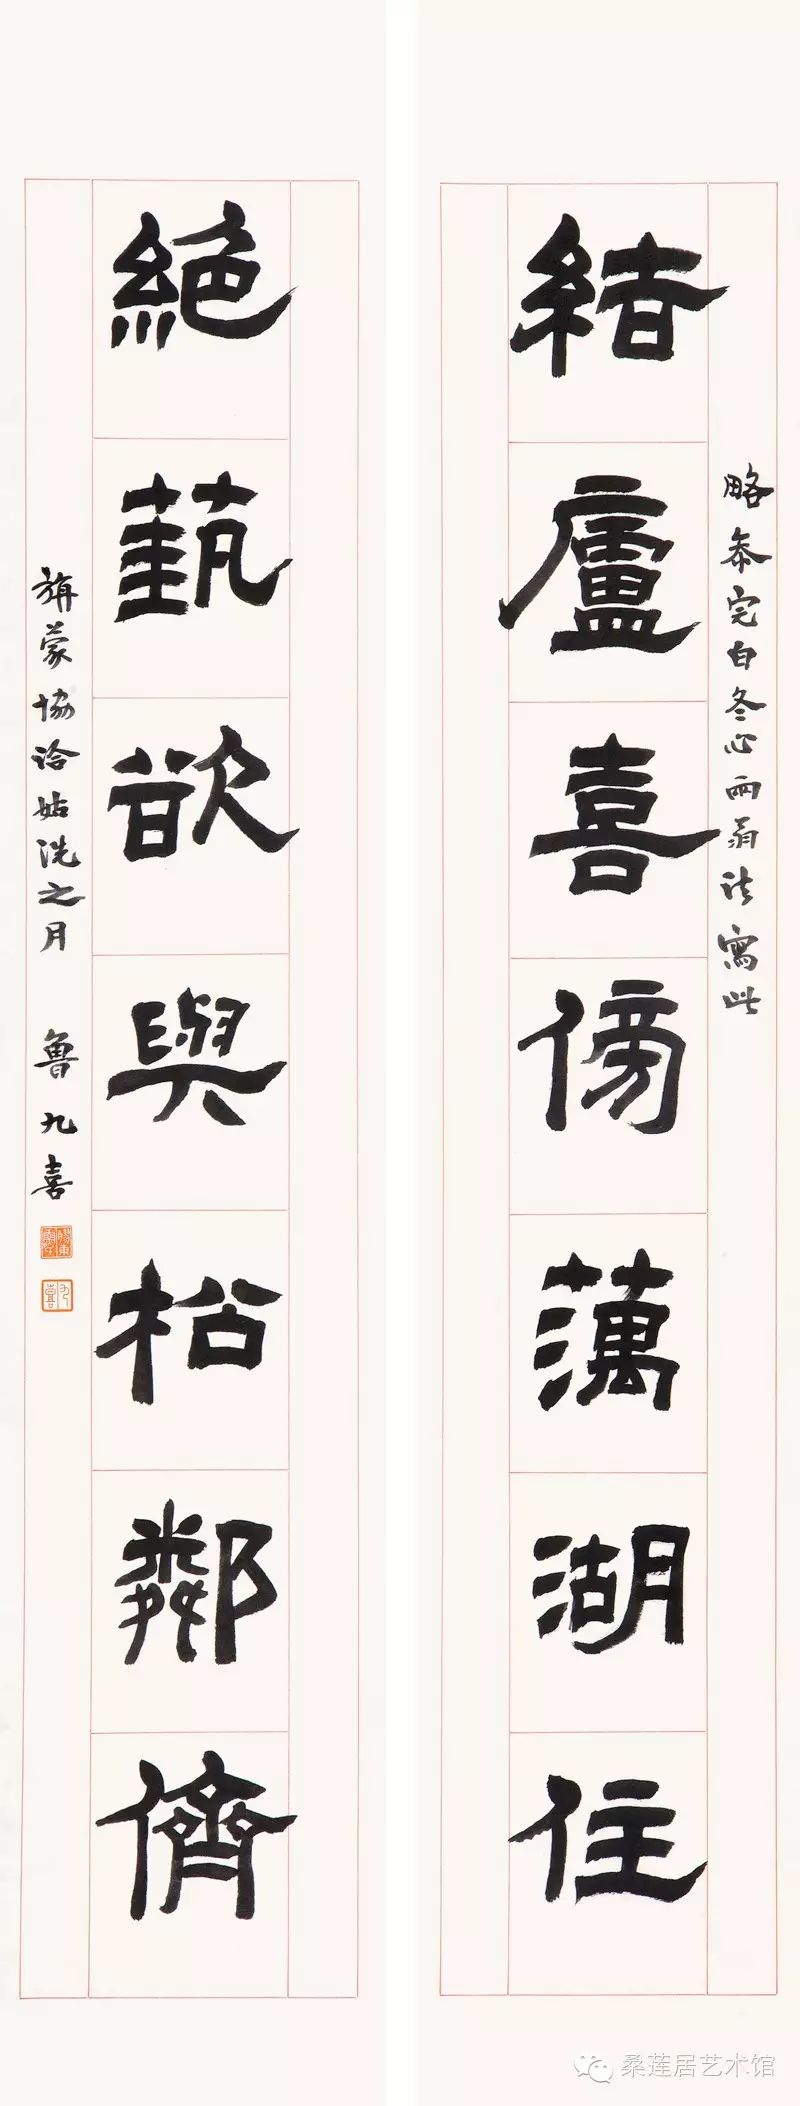 結廬喜傍蕅湖住
略叅完白冬心兩翁法寫此
絶蓺欲與松鄰儕
旃蒙協洽姑洗之月 魯九喜
九喜
桑莲居艺术馆